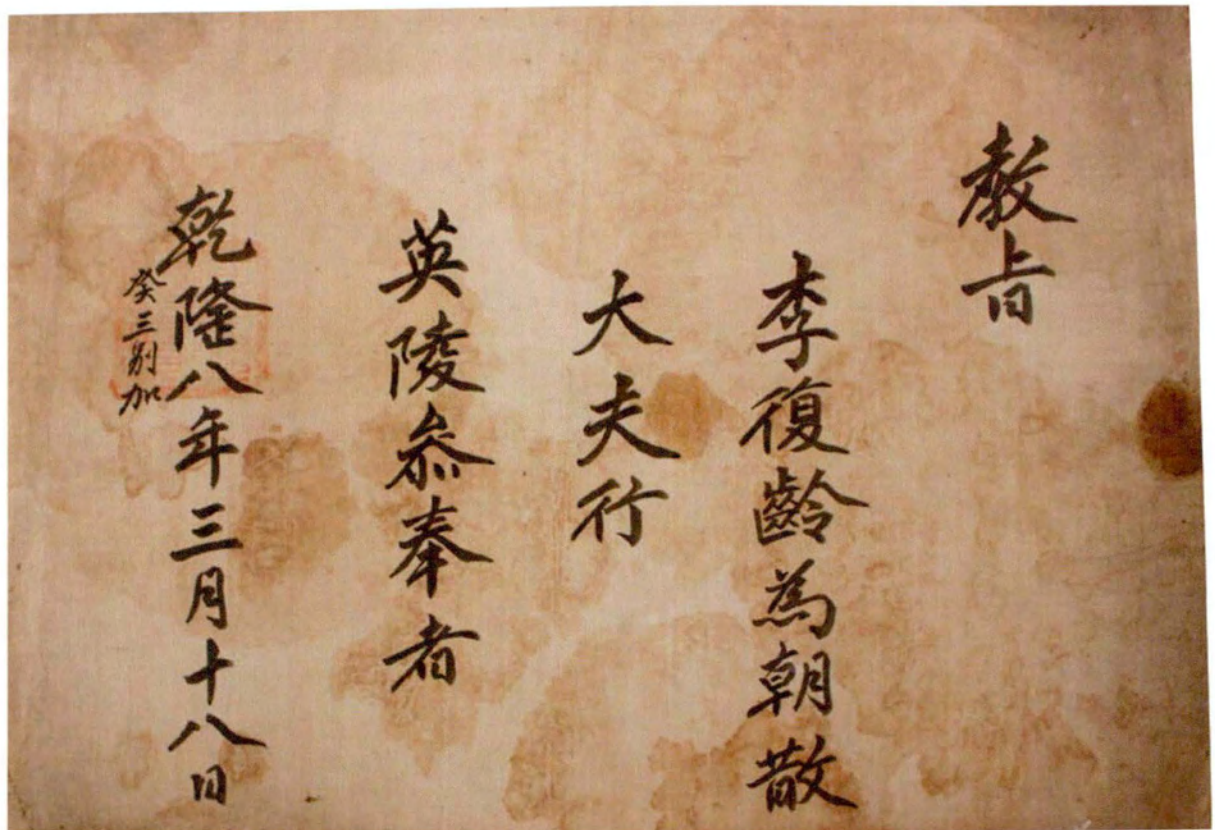 教旨
李復齡為朝散
大夫行
英陵叅奉者
乾隆八年三月十八日
癸三別加